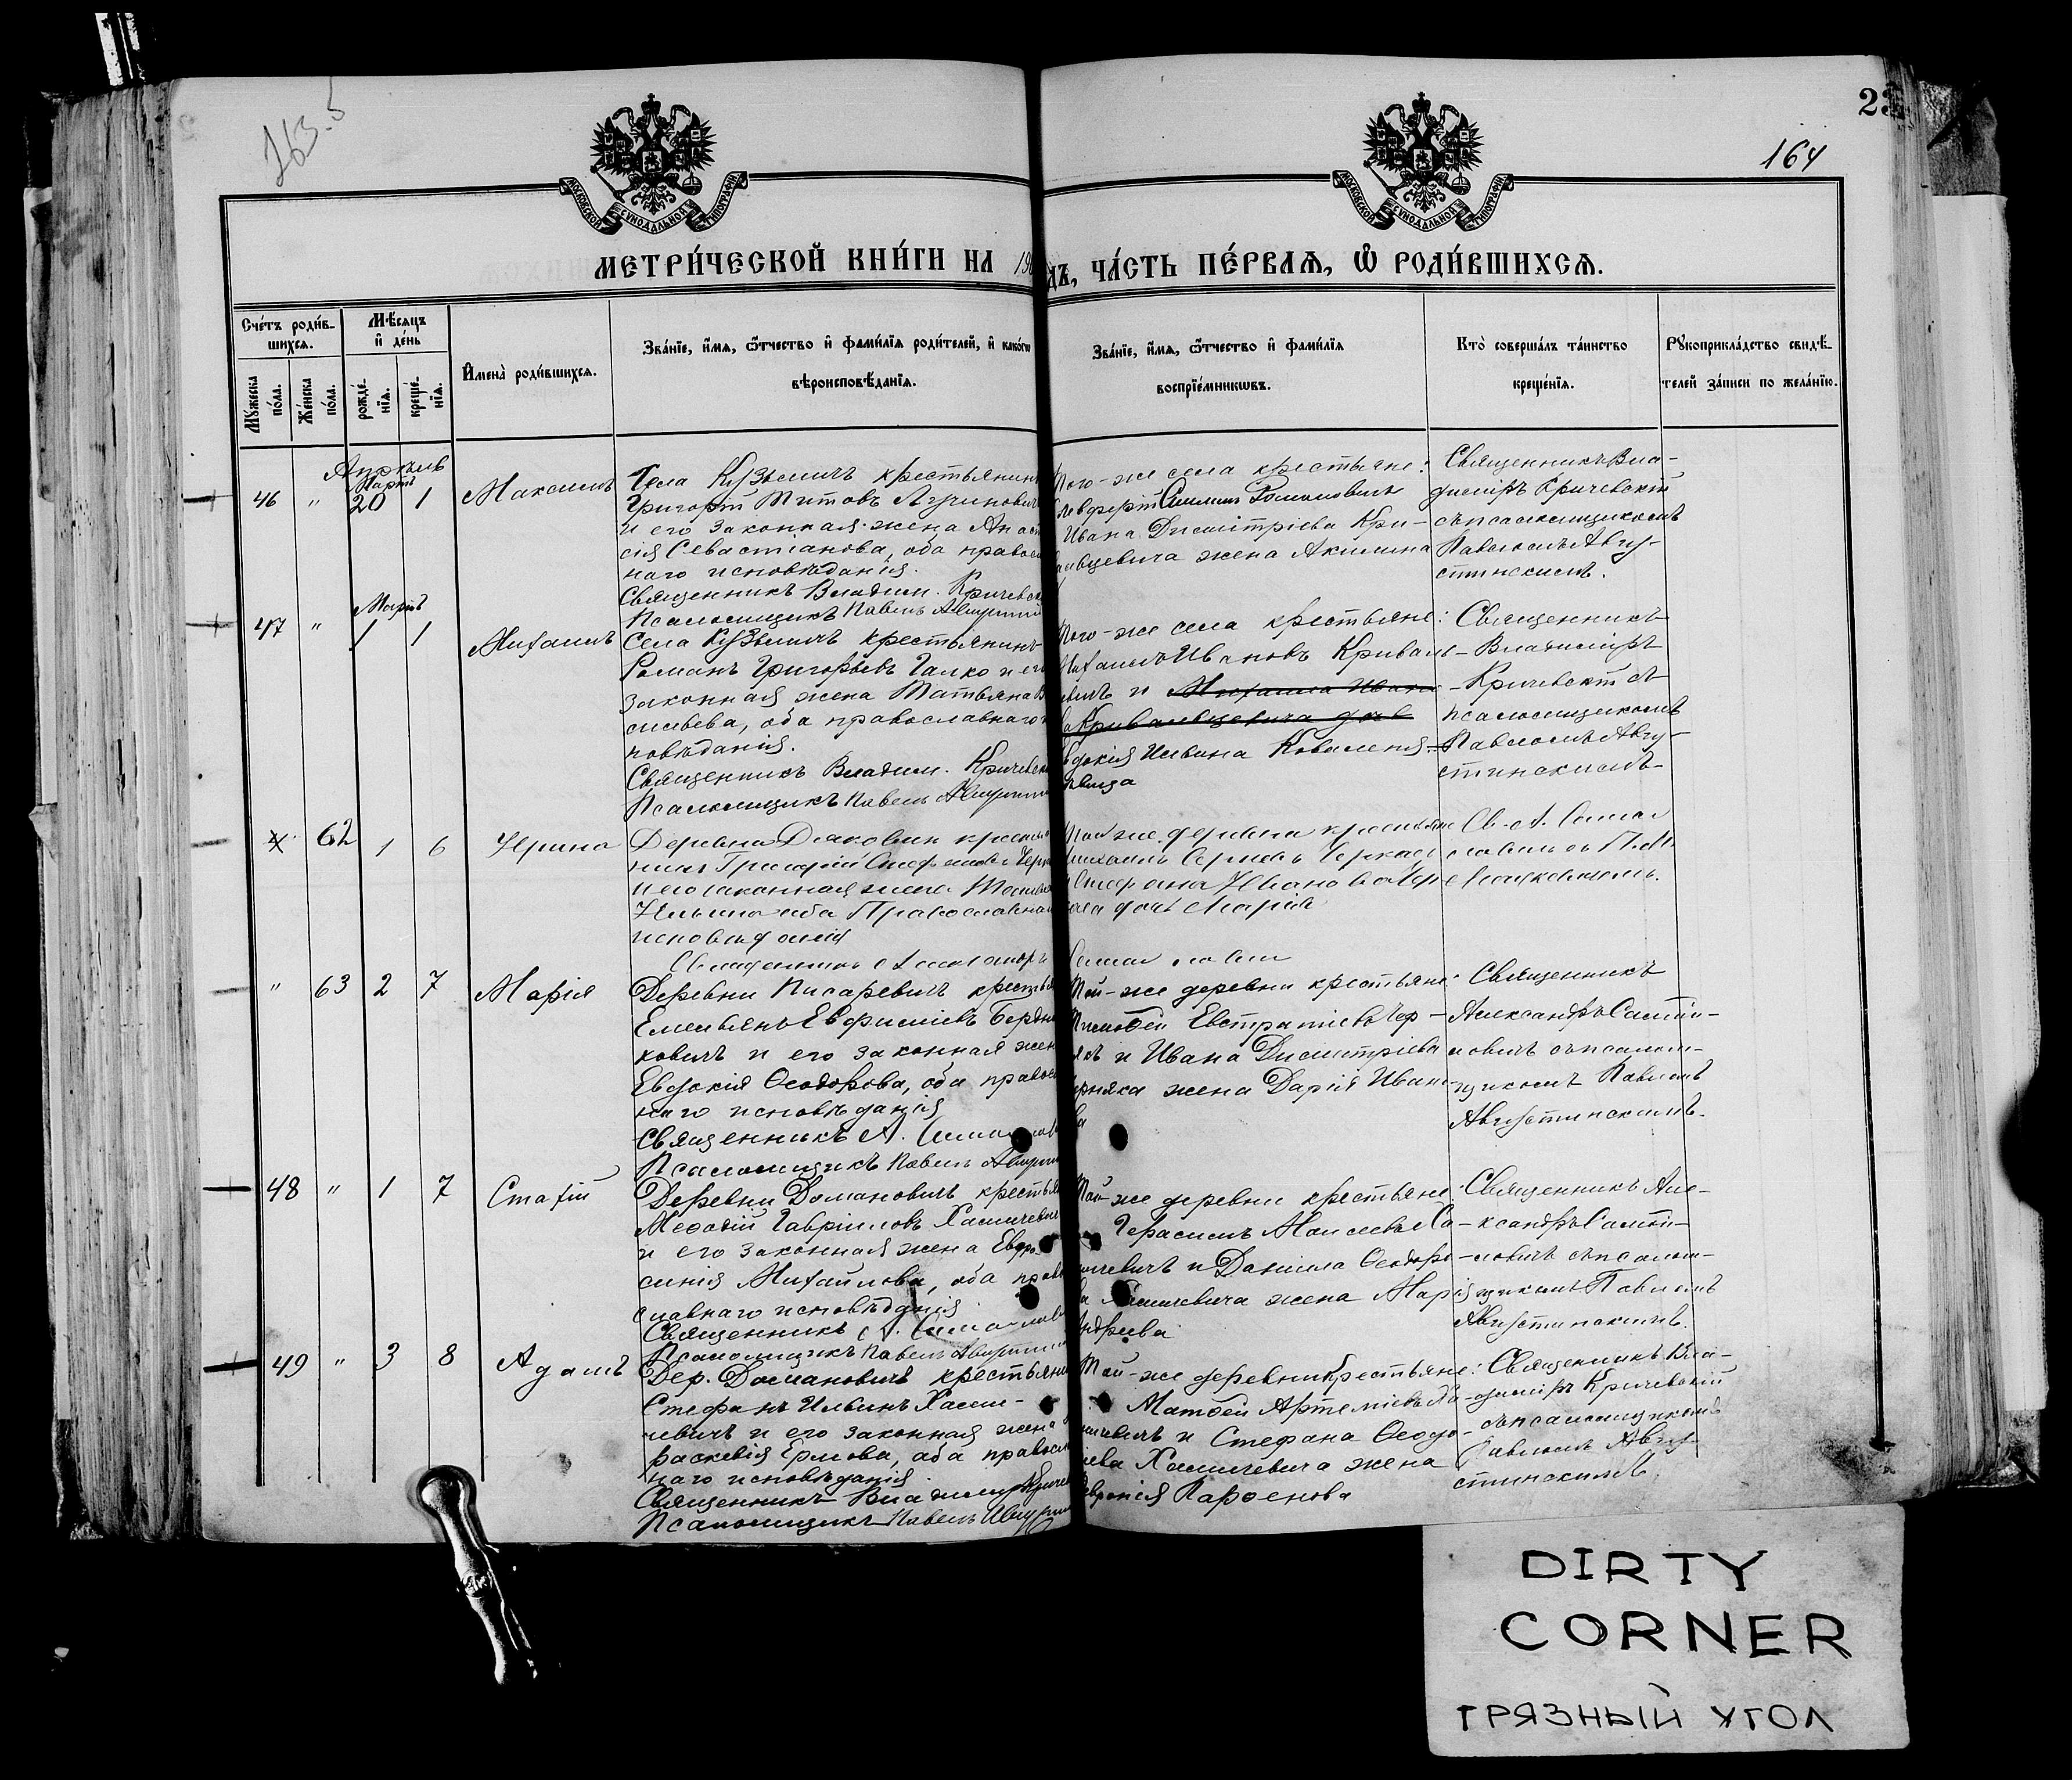 163.5
23
164
МОСКОВСКОЙ СУНОДАЛЬНОЙ ТИПОГРАФІИ
МОСКОВСКОЙ СУНОДАЛЬНОЙ ТИПОГРАФІИ
МЕТРИ́ЧЕСКОЙ КНИ́ГИ НА 190
ДЪ, ЧА́СТЬ ПЕ́РВАѦ, Ѡ҆ РОДИ́ВШИХСѦ.
Сче́тъ роди́в-
шихсѧ.
Мꙋжеска по́ла.
Же́нска по́ла.
Мѣ́сѧцъ
и҆ де́нь
рожде́-
нїѧ.
креще́-
нїѧ.
И҆мена̀ роди́вшихсѧ.
Зва́нїе, и҆́мѧ, ѻ҆́тчество и҆ фами́лїѧ роди́телей, и҆ како́гѡ
вѣроисповѣ́данїѧ.
Зва́нїе, и҆́мѧ, ѻ҆́тчество и҆ фами́лїѧ
воспрїе́мникѡвъ.
Кто̀ соверша́лъ та́инство
креще́нїѧ.
Рꙋкоприкла́дство свидѣ́-
телей за́писи по жела́нїю.
Апрѣль
Мартъ
46 " 20 1 Максимъ
Села Кузьмичъ крестьянинъ
Григорій Титовъ
и его законная жена Анаст
сія Севастіанова, оба правосл
наго исповѣданія.
Священникъ Владим. Кричевск
Псаломщикъ Павелъ
Того-же села крестьяне:
Ивана Димитріева Кри-
вальцевича жена Акилина
Священникъ Вла-
диміръ Кричевскій
съ псаломщикомъ
Павломъ Авгу-
стинскимъ.
Мартъ
47 " 1 1 Михаилъ
Села Кузьмичъ крестьянинъ
Романъ Григорьевъ Галко и его
законная жена Татьяна В
сильева, оба православнаго и
повѣданія.
Священникъ Владим. Кричевск
Псаломщикъ Павелъ
Того-же села крестьяне:
Михаилъ Ивановъ Криваль-
евичъ и Михаила Ивано
ва Кривальцевича дочь
вдокія Ильина
Священникъ
Владиміръ
Кричевскій съ
псаломщикомъ
Павломъ Авгу-
стинскимъ.
62 1 6 Ирина
Деревни Дяковичъ кресть
нинъ Григорій Стефановъ
и его законная жена
Ильина оба Православнаго
исповѣданія
Священникъ Александръ
Той же деревни крестьяне
Михаилъ
Стефана Иванова
дочь Марія
Св. А.
" 63 2 7 Марія
Деревни Писаревичъ крестья
Емельянъ Евфиміевъ
ковичъ и его законная жен
Евдокія Ѳеодорова, оба правосл
наго исповѣданія
Священникъ А.
Псаломщикъ Павелъ
Той-же деревни крестьяне:
Тимоѳей Евстратіевъ Чер-
някъ и Ивана Димитріева
ерняка жена Дарія Ивано
ва
Священникъ
Александръ
новичъ съ псалом-
щикомъ Павломъ
Августинскимъ.
48 " 1 7
Деревни Домановичъ крестья
Меѳодій Гавріиловъ Хамичевичъ
и его законная жена Евфро-
синія Михайлова, оба прав
славнаго исповѣданія
Священникъ А.
Псаломщикъ Павелъ
Той-же деревни крестьяне:
Герасимъ Моисеевъ Ха-
мичевичъ и Даніила Ѳеодоро-
ва Хамичевича жена Марія
Андреева
Священникъ Але-
ксандръ
новичъ съ псалом-
щикомъ Павломъ
Августинскимъ.
49 " 3 8 Адамъ
Дер. Домановичъ крестьяни
Стефанъ Ильинъ Хами-
чевичъ и его законная жена
раскевія Ермова, оба правосл
наго исповѣданія.
Священникъ Владиміръ Кричев
Псаломщикъ Павелъ
Той-же деревни крестьяне:
Матѳей Артеміевъ Ха-
мичевичъ и Стефана Ѳеодо-
рова Хамичевича жена
Февронія Парѳенова
Священникъ Вла-
диміръ Кричевскій
съ псаломщикомъ
Павломъ Авгу-
стинскимъ.
DIRTY
CORNER
ГРЯЗНЫЙ УГОЛ